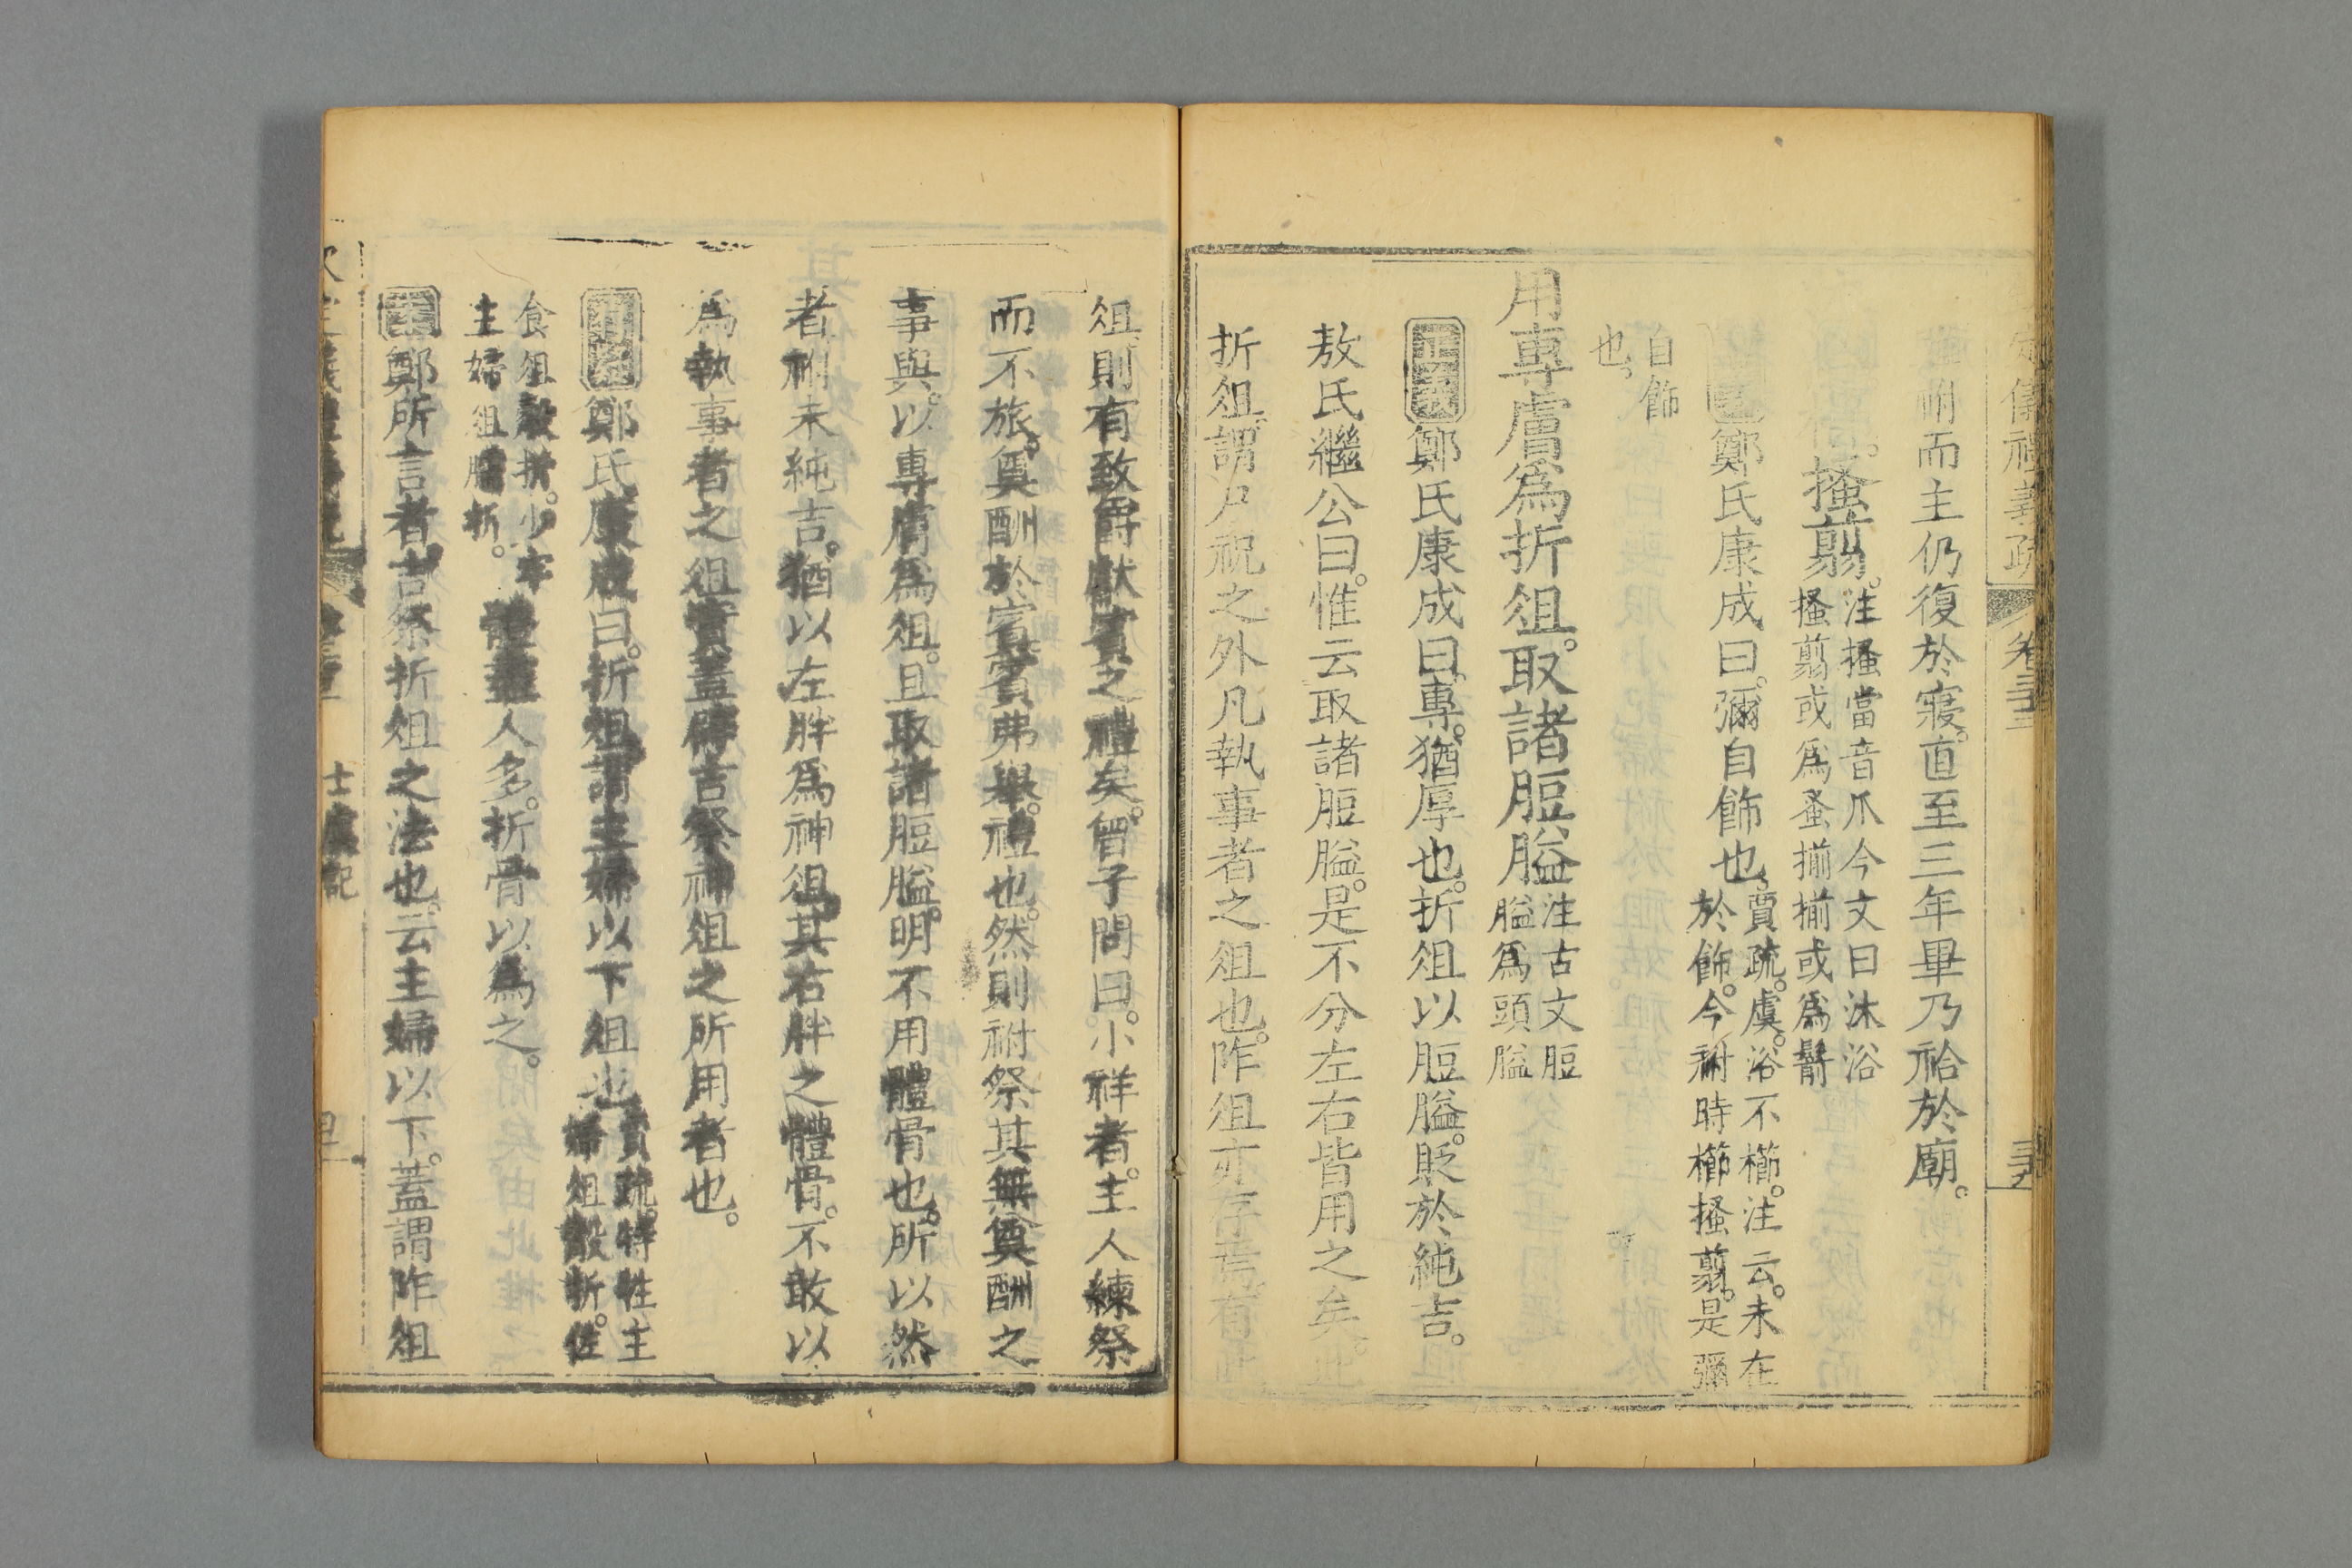 定儀禮義疏 卷三十三
祔而主仍復於寢。直至三年畢乃祫於廟。
搔翦。注搔當音爪今文曰沐浴
搔翦或爲蚤揃揃或爲鬋
鄭氏康成曰。彌自飾也。賈疏。虞。浴不櫛。注云。未在
於飾。今祔時櫛搔翦。是彌
自飾
也。
用專膚爲折俎。取諸脰膉注古文脰
膉爲頭膉
正義鄭氏康成曰。專。猶厚也。折俎以脰膉。貶於純吉。
敖氏繼公曰。惟云取諸脰膉。是不分左右皆用之矣。此
折俎。謂尸祝之外凡執事者之俎也。阼俎亦存焉。有
俎。則有致爵獻賓之禮矣。曾子問曰。小祥者。主人練祭
而不旅。奠酬於賓賓弗舉。禮也。然則祔祭其無奠酬之
事與。以專膚爲俎。且取諸脰膉。明不用體骨也。所以然
者。祔未純吉。猶以左胖爲神俎。其右胖之體骨。不敢以
爲執事者之俎實蓋辟吉祭神俎之所用者也。
鄭氏康成曰。折俎謂主婦以下俎也賈疏。特牲主
婦俎觳折。佐
食俎觳折。少牢
主婦俎臑折。體盡人多。折骨以爲之。
鄭所言者吉祭折俎之法也。云主婦以下。蓋謂阼俎
士虞記